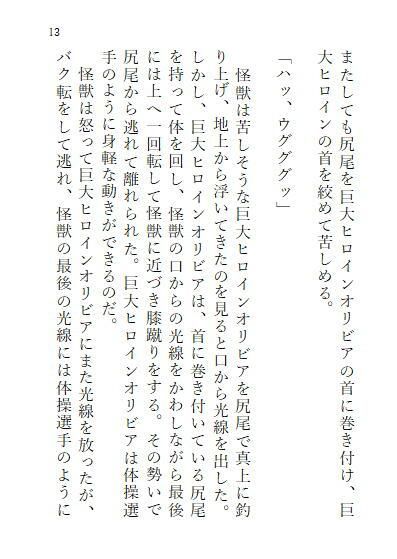 13
またしても尻尾を巨大ヒロインオリビアの首に巻き付け、巨
大ヒロインの首を絞めて苦しめる。
「ハッ、ウグググッ」
怪獣は苦しそうな巨大ヒロインオリビアを尻尾で真上に釣
り上げ、地上から浮いてきたのを見ると口から光線を出した。
しかし、巨大ヒロインオリビアは、首に巻き付いている尻尾
を持って体を回し、怪獣の口からの光線をかわしながら最後
には上へ一回転して怪獣に近づき膝蹴りをする。その勢いで
尻尾から逃れて離れられた。巨大ヒロインオリビアは体操選
手のように身軽な動きができるのだ。
怪獣は怒って巨大ヒロインオリビアにまた光線を放ったが、
バク転をして逃れ、怪獣の最後の光線には体操選手のように